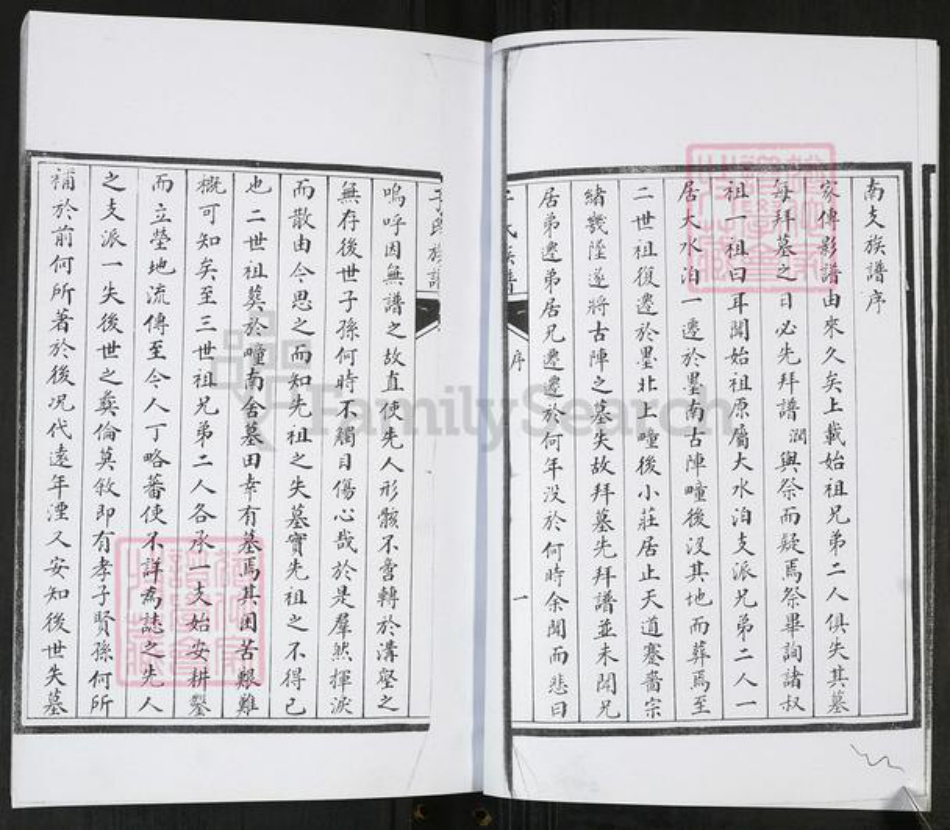 南支族譜序
家傳影譜由來久矣上載始祖兄弟二人俱失其墓
每拜墓之日必先拜譜潤與祭而疑焉祭畢詢諸叔
祖一祖曰耳聞始祖原屬大水泊支派兄弟二人一
居大水泊一遷於墨南古陣疃後沒其地而葬焉至
二世祖復遷於墨北上疃後小莊居止天道蹇嗇宗
緒幾墜遂將古陣之墓失故拜墓先拜譜並未聞兄
居弟遷弟居兄遷遷於何年沒於何時余聞而悲曰
氏族譜
序
一
嗚呼因無譜之故直使先人形骸不啻轉於溝壑之
無存後世子孫何時不觸目傷心哉於是羣然揮淚
而散由今思之而知先祖之失墓實先祖之不得已
也二世祖葬於疃南舍墓田幸有墓焉其困苦艱難
概可知矣至三世祖兄弟二人各承一支始安耕鑿
而立塋地流傳至今人丁略蕃使不詳為誌之先人
之支派一失後世之彝倫莫敘即有孝子賢孫何所
補於前何所著於後况代遠年湮又安知後世失墓
FamilySearch